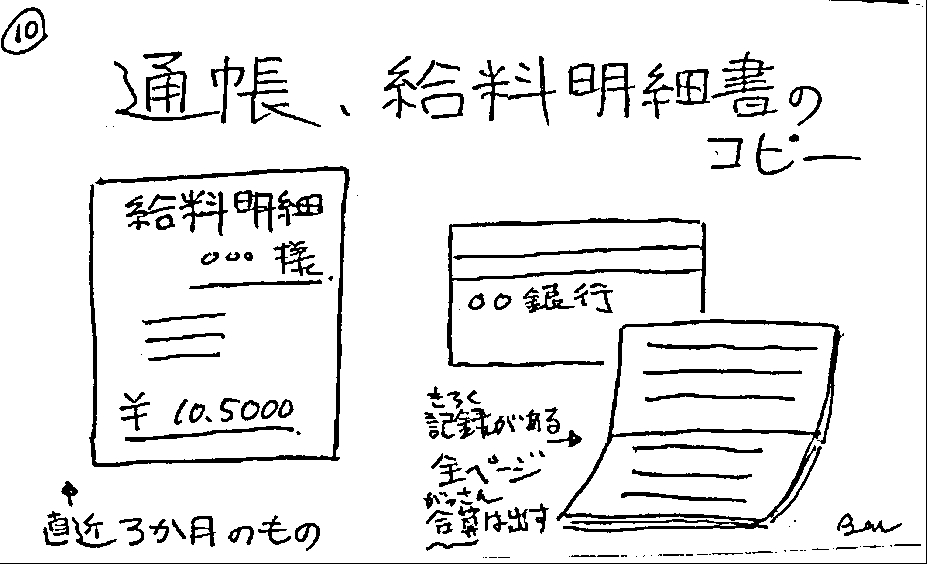 ⑩
通帳、給料明細書の
コピー
給料明細
○○○ 様
¥ 10.5000
直近3か月のもの
○○銀行
きろく
記録がある
全ページ
がっさん
合算は出す